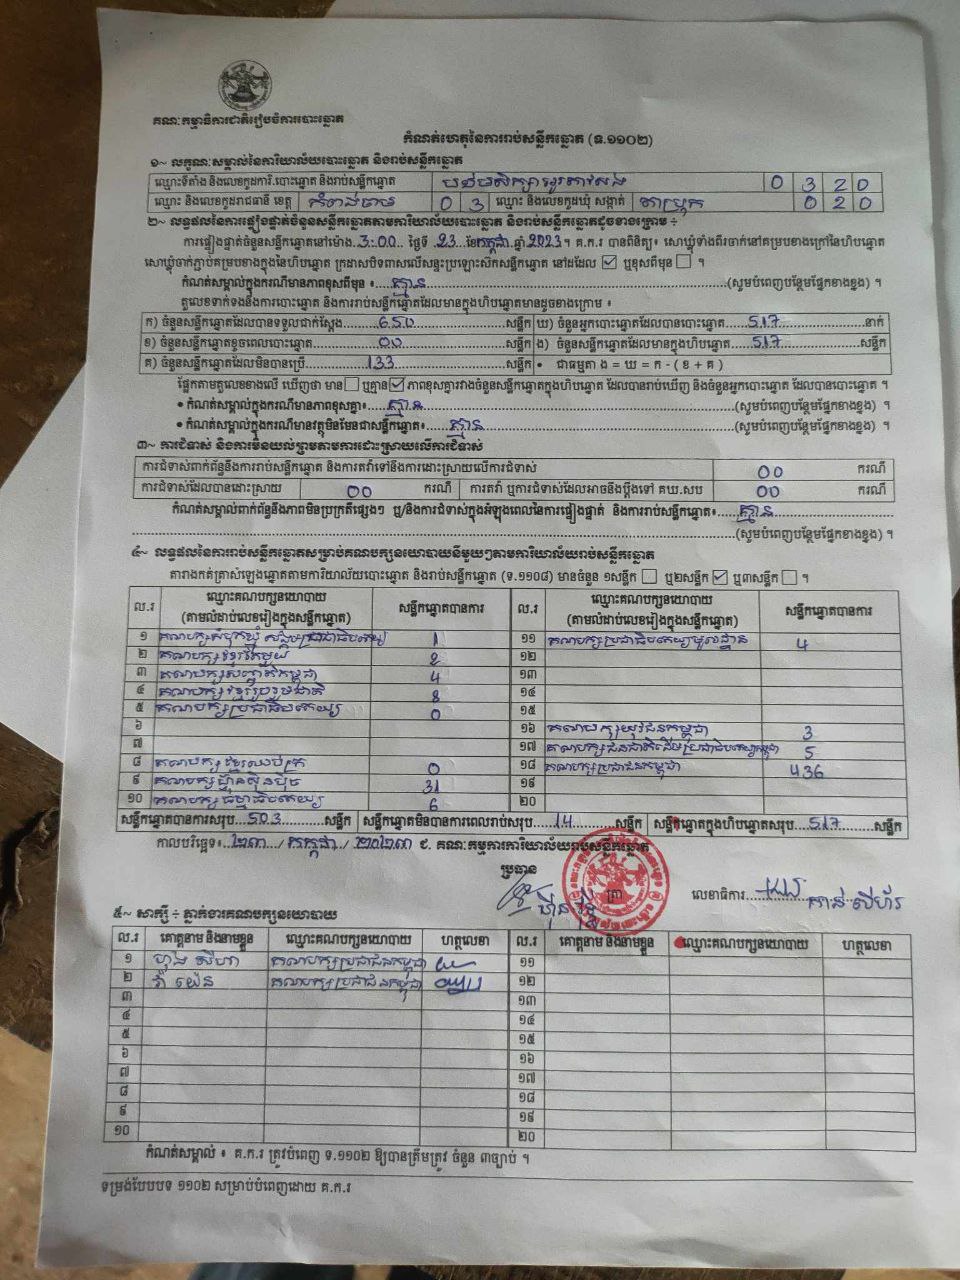 គណៈកម្មាធិការជាតិរៀបចំការបោះឆ្នោត
កំណត់ហេតុនៃការរាប់សន្លឹកឆ្នោត (ទ.១១០២)
១~ លក្ខណៈសម្គាល់នៃការិយាល័យបោះឆ្នោត និងរាប់សន្លឹកឆ្នោត
ឈ្មោះទីតាំង និងលេខកូដការិ.បោះឆ្នោត និងរាប់សន្លឹកឆ្នោត 0 3 2 0
ឈ្មោះ និងលេខកូដរាជធានី ខេត្ត កំពង់ចាម 0 3 ឈ្មោះ និងលេខកូដឃុំ សង្កាត់ អាប្រុក 0 2 0
២~ លទ្ធផលនៃការផ្ទៀងផ្ទាត់ចំនួនសន្លឹកឆ្នោតតាមការិយាល័យបោះឆ្នោត និងរាប់សន្លឹកឆ្នោតដូចខាងក្រោម ÷
ការផ្ទៀងផ្ទាត់ចំនួនសន្លឹកឆ្នោតនៅម៉ោង 3:00 ថ្ងៃទី 23 ខែ កក្កដា ឆ្នាំ 2023 ។ គ.ក.រ បានពិនិត្យ៖ សោឃ្មុំទាំងពីរចាក់នៅគម្របខាងក្រៅនៃហិបឆ្នោត
សោឃ្មុំចាក់ភ្ជាប់គម្របខាងក្នុងនៃហិបឆ្នោត ក្រដាសបិទពាសលើសន្ទះប្រឡោះស៊កសន្លឹកឆ្នោត នៅដដែល ☑ ឬខុសពីមុន ☐ ។
កំណត់សម្គាល់ក្នុងករណីមានភាពខុសពីមុន ៖ គ្មាន (សូមបំពេញបន្ថែមផ្នែកខាងខ្នង) ។
តួលេខទាក់ទងនឹងការបោះឆ្នោត និងការរាប់សន្លឹកឆ្នោតដែលមានក្នុងហិបឆ្នោតមានដូចខាងក្រោម ៖
ក) ចំនួនសន្លឹកឆ្នោតដែលបានទទួលជាក់ស្តែង 650 សន្លឹក ឃ) ចំនួនអ្នកបោះឆ្នោតដែលបានបោះឆ្នោត 517 នាក់
ខ) ចំនួនសន្លឹកឆ្នោតខូចពេលបោះឆ្នោត 00 សន្លឹក ង) ចំនួនសន្លឹកឆ្នោតដែលមានក្នុងហិបឆ្នោត 517 សន្លឹក
គ) ចំនួនសន្លឹកឆ្នោតដែលមិនបានប្រើ 133 សន្លឹក • ជាធម្មតា ង = ឃ = ក - ( ខ + គ )
ផ្អែកតាមតួលេខខាងលើ ឃើញថា មាន ☐ ឬគ្មាន ☑ ភាពខុសគ្នារវាងចំនួនសន្លឹកឆ្នោតក្នុងហិបឆ្នោត ដែលបានរាប់ឃើញ និងចំនួនអ្នកបោះឆ្នោត ដែលបានបោះឆ្នោត ។
• កំណត់សម្គាល់ក្នុងករណីមានភាពខុសគ្នា៖ គ្មាន (សូមបំពេញបន្ថែមផ្នែកខាងខ្នង) ។
• កំណត់សម្គាល់ក្នុងករណីមានវត្ថុមិនមែនជាសន្លឹកឆ្នោត៖ គ្មាន (សូមបំពេញបន្ថែមផ្នែកខាងខ្នង) ។
៣~ ការជំទាស់ និងការមិនយល់ព្រមតាមការដោះស្រាយលើការជំទាស់
ការជំទាស់ពាក់ព័ន្ធនឹងការរាប់សន្លឹកឆ្នោត និងការតវ៉ាទៅនឹងការដោះស្រាយលើការជំទាស់ 00 ករណី
ការជំទាស់ដែលបានដោះស្រាយ 00 ករណី ការតវ៉ា ឬការជំទាស់ដែលអាចនឹងប្តឹងទៅ គឃ.សប 00 ករណី
កំណត់សម្គាល់ពាក់ព័ន្ធនឹងភាពមិនប្រក្រតីផ្សេងៗ ឬ/និងការជំទាស់ក្នុងអំឡុងពេលនៃការផ្ទៀងផ្ទាត់ និងការរាប់សន្លឹកឆ្នោត៖ គ្មាន
(សូមបំពេញបន្ថែមផ្នែកខាងខ្នង) ។
៤~ លទ្ធផលនៃការរាប់សន្លឹកឆ្នោតសម្រាប់គណបក្សនយោបាយនីមួយៗតាមការិយាល័យរាប់សន្លឹកឆ្នោត
តារាងកត់ត្រាសំឡេងឆ្នោតតាមការិយាល័យបោះឆ្នោត និងរាប់សន្លឹកឆ្នោត (ទ.១១០៨) មានចំនួន ១សន្លឹក ☐ ឬ២សន្លឹក ☑ ឬ៣សន្លឹក ☐ ។
ល.រ ឈ្មោះគណបក្សនយោបាយ (តាមលំដាប់លេខរៀងក្នុងសន្លឹកឆ្នោត) សន្លឹកឆ្នោតបានការ ល.រ ឈ្មោះគណបក្សនយោបាយ (តាមលំដាប់លេខរៀងក្នុងសន្លឹកឆ្នោត) សន្លឹកឆ្នោតបានការ
១ គណបក្សសំបុកឃ្មុំសង្គមប្រជាធិបតេយ្យ 1 ១១ គណបក្សប្រជាធិបតេយ្យមូលដ្ឋាន 4
២ គណបក្សខ្មែរតែមួយ 2 ១២
៣ គណបក្សសញ្ជាតិកម្ពុជា 4 ១៣
៤ គណបក្សខ្មែររួបរួមជាតិ 8 ១៤
៥ គណបក្សប្រជាធិបតេយ្យ 0 ១៥
៦ ១៦ គណបក្សយុវជនកម្ពុជា 3
៧ ១៧ គណបក្សជនជាតិដើមប្រជាធិបតេយ្យកម្ពុជា 5
៨ គណបក្សខ្មែរឈប់ក្រ 0 ១៨ គណបក្សប្រជាជនកម្ពុជា 436
៩ គណបក្សហ្វ៊ុនស៊ិនប៉ិច 31 ១៩
១០ គណបក្សធម្មាធិបតេយ្យ 6 ២០
សន្លឹកឆ្នោតបានការសរុប 503 សន្លឹក សន្លឹកឆ្នោតមិនបានការពេលរាប់សរុប 14 សន្លឹក សន្លឹកឆ្នោតក្នុងហិបឆ្នោតសរុប 517 សន្លឹក
កាលបរិច្ឆេទ៖ ២៣ / កក្កដា / ២០២៣ ជ. គណៈកម្មការការិយាល័យរាប់សន្លឹកឆ្នោត
ប្រធាន
ត្រា លេខាធិការ កាន់ ស៊ីហ័រ
៥~ សាក្សី ÷ ភ្នាក់ងារគណបក្សនយោបាយ
ល.រ គោត្តនាម និងនាមខ្លួន ឈ្មោះគណបក្សនយោបាយ ហត្ថលេខា ល.រ គោត្តនាម និងនាមខ្លួន ឈ្មោះគណបក្សនយោបាយ ហត្ថលេខា
១ ហួង សីហា គណបក្សប្រជាជនកម្ពុជា ១១
២ វ៉ា យ៉េន គណបក្សប្រជាជនកម្ពុជា ១២
៣ ១៣
៤ ១៤
៥ ១៥
៦ ១៦
៧ ១៧
៨ ១៨
៩ ១៩
១០ ២០
កំណត់សម្គាល់ ៖ គ.ក.រ ត្រូវបំពេញ ទ.១១០២ ឱ្យបានត្រឹមត្រូវ ចំនួន ៣ច្បាប់ ។
ទម្រង់បែបបទ ១១០២ សម្រាប់បំពេញដោយ គ.ក.រ